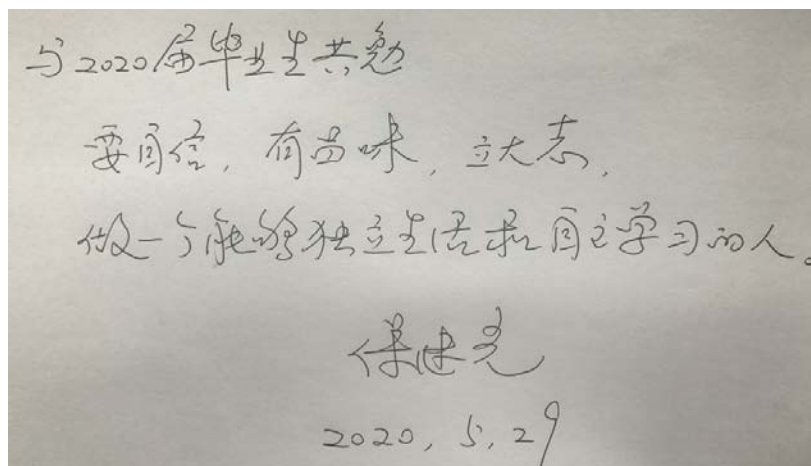 与2020届毕业生共勉
要自信，有品味，立大志，
做一个能够独立生活和自主学习的人。
保建光
2020，5，29